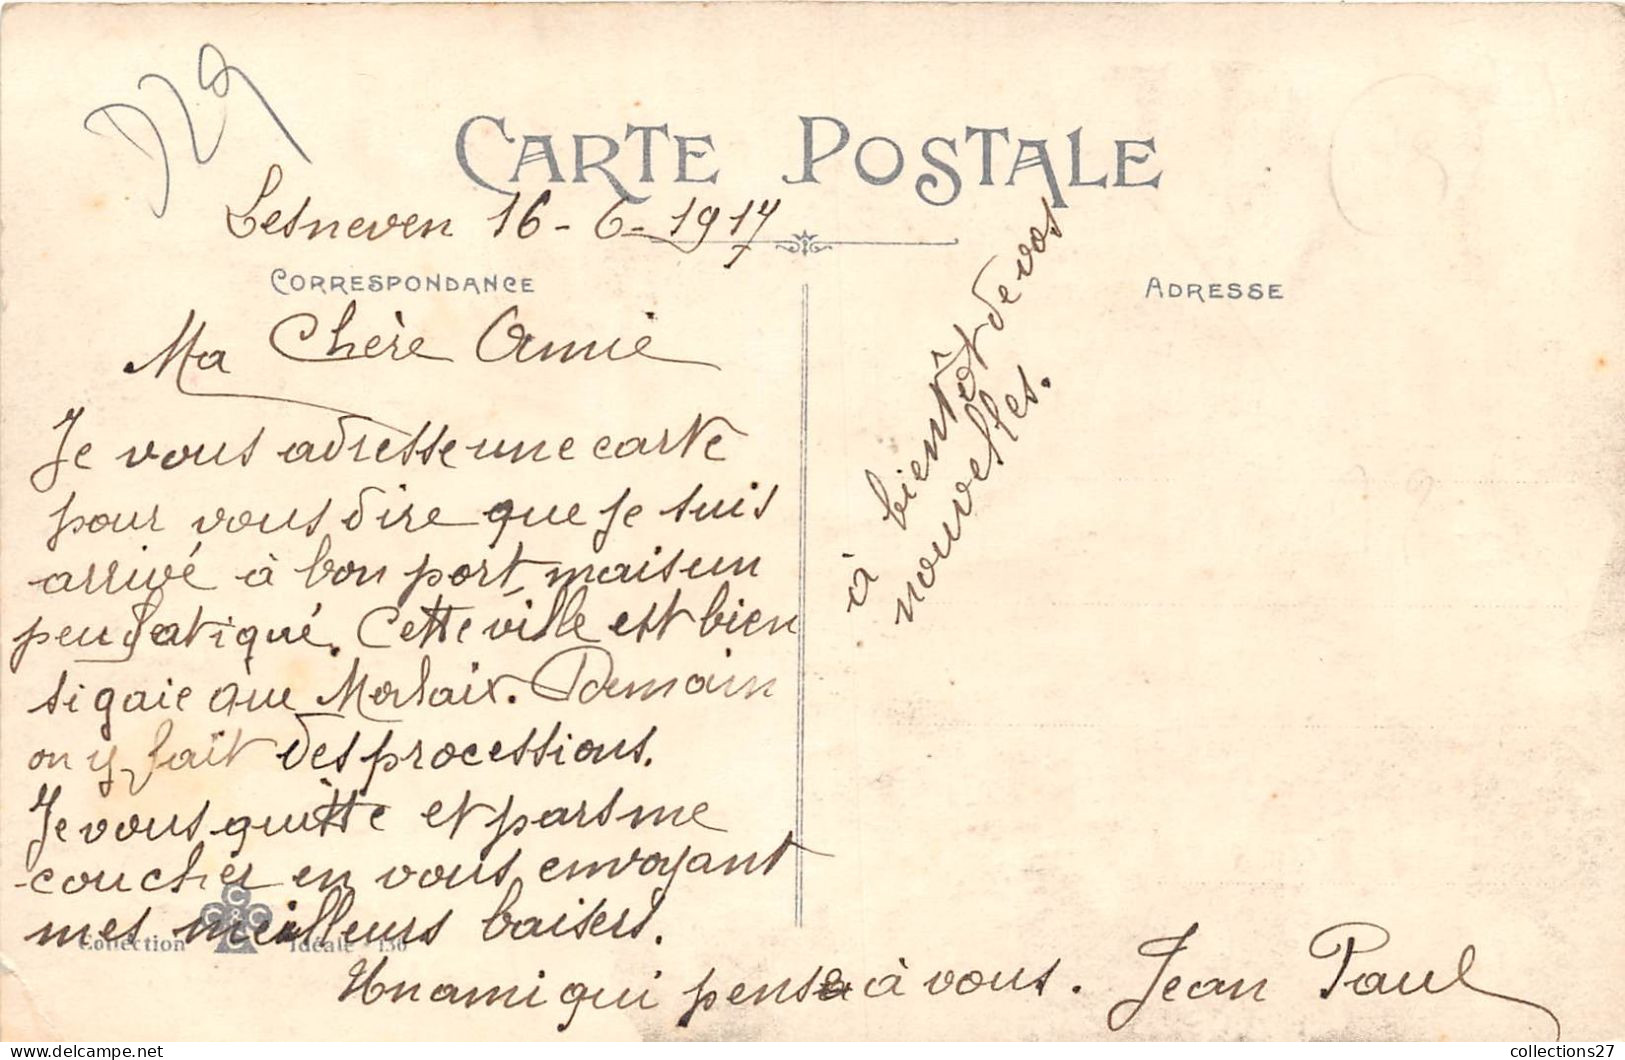 D29
CARTE POSTALE
Lesneven 16-6-1917
CORRESPONDANCE
ADRESSE
Ma Chère Amie
Je vous adresse une carte
pour vous dire que je suis
arrivé à bon port, mais un
peu fatiqué. Cette ville est bien
si gaie que Morlaix. Demain
on y fait des processions.
Je vous quitte et pars me
coucher en vous envoyant
mes meilleurs baisers.
Un ami qui pense à vous. Jean Paul
à bientôt de vos
nouvelles.
C C & C
Collection Idéale 136
collections27